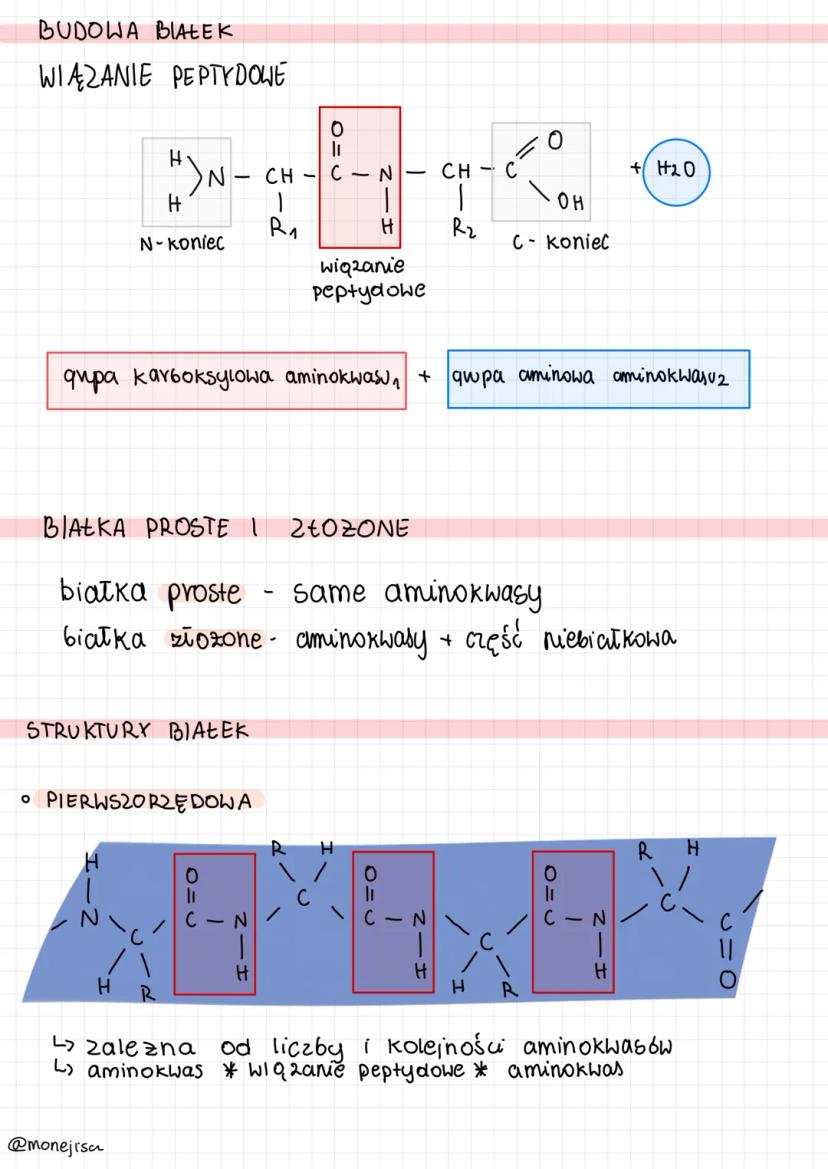 BUDOWA BIAŁEK
WIĄZANIE PEPTYDOWE
H
H
N – CH – C – N – CH – C
O
H
R1
R2
O
OH
+ H2O
N-koniec
C - koniec
wiązanie
peptydowe
grupa karboksylowa aminokwasu1 + grupa aminowa aminokwasu2
BIAŁKA PROSTE I ZŁOŻONE
białka proste - same aminokwasy
białka złożone - aminokwasy + część niebiałkowa
STRUKTURY BIAŁEK
PIERWSZORZĘDOWA
H O R H O O R H
N C C – N C C – N C C – N C C
H R H H H R H O
↳ zależna od liczby i kolejności aminokwasów
↳ aminokwas * wiązanie peptydowe * aminokwas
@monejrsa